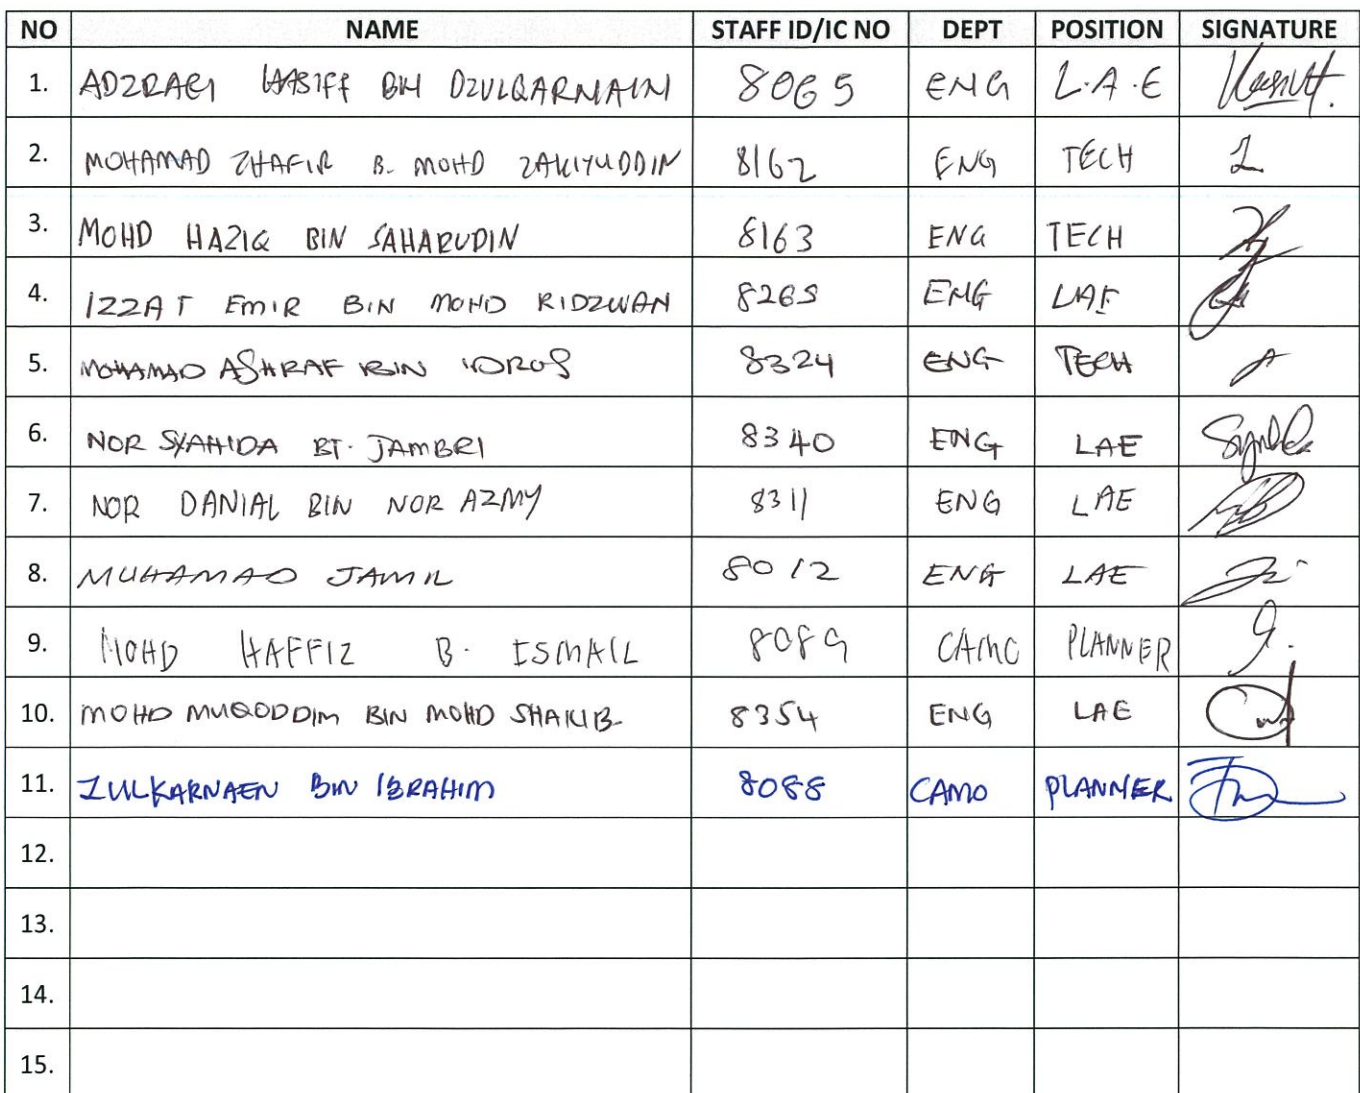 NO NAME STAFF ID/IC NO DEPT POSITION SIGNATURE
1. ADZRAEI HASIFF BIN DZULQARNAIN 8065 ENG L.A.E
2. MOHAMAD ZHAFIR B. MOHD ZAKIYUDDIN 8162 ENG TECH
3. MOHD HAZIQ BIN SAHARUDIN 8163 ENG TECH
4. IZZAT EMIR BIN MOHD RIDZWAN 8265 ENG LAE
5. MOHAMAD ASHRAF BIN IDROS 8324 ENG TECH
6. NOR SYAHIDA BT. JAMBRI 8340 ENG LAE
7. NOR DANIAL BIN NOR AZMY 8311 ENG LAE
8. MUHAMAD JAMIL 8012 ENG LAE
9. MOHD HAFFIZ B. ISMAIL 8089 CAMO PLANNER
10. MOHD MUQODDIM BIN MOHD SHAKIB 8354 ENG LAE
11. ZULKARNAEN BIN IBRAHIM 8088 CAMO PLANNER
12.
13.
14.
15.